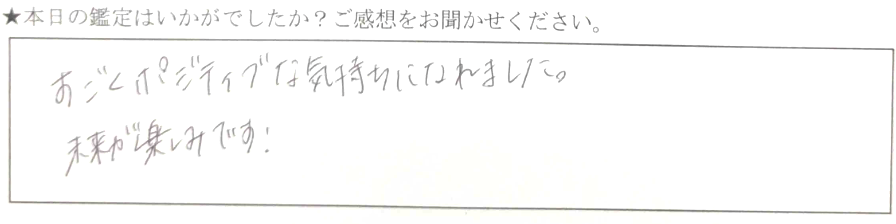 ★本日の鑑定はいかがでしたか？ご感想をお聞かせください。
すごくポジティブな気持ちになれました。
未来が楽しみです!